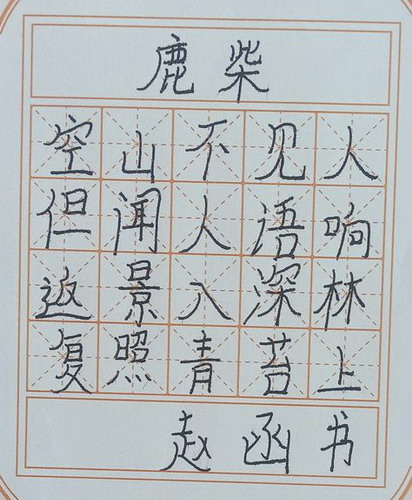 鹿柴
空山不见人
但闻人语响
返景入深林
复照青苔上
赵函书